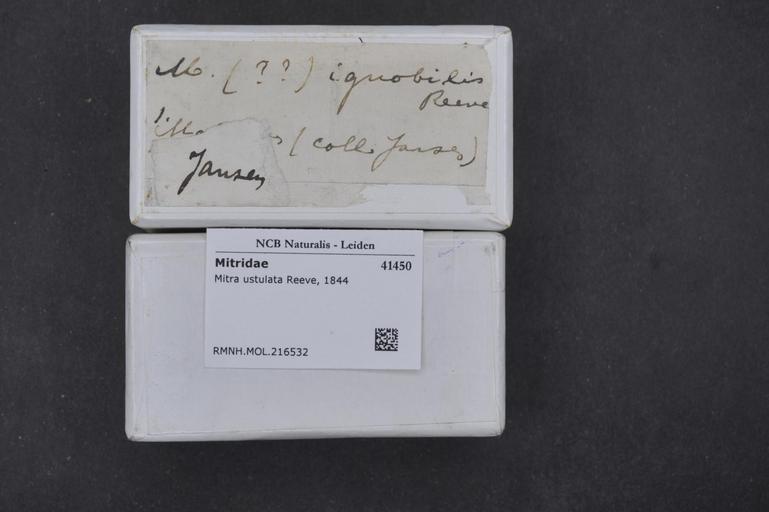 M. (??) ignobilis
Reeve
(coll. Jansen)
Jansen
NCB Naturalis - Leiden
Mitridae 41450
Mitra ustulata Reeve, 1844
RMNH.MOL.216532